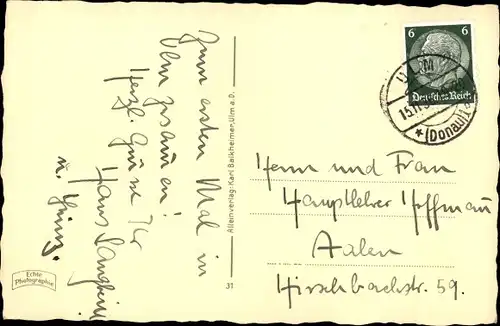 Zum ersten Mal in
Ulm zusammen!
Herzl. Grüße Ihr
Hans
u.
Echte
Photographie
Alleinverlag: Karl Balkheimer, Ulm a.D.
31
6 6
Deutsches Reich
ULM
(Donau)
Herrn und Frau
Hauptlehrer Hoffmann
Aalen
Hirschbachstr. 59.